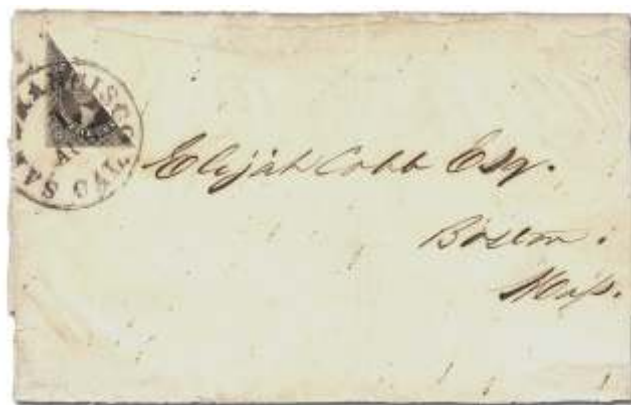 SAN FRANCISCO
CAL.
Elijah Cobb Esq.
Boston.
Mass.